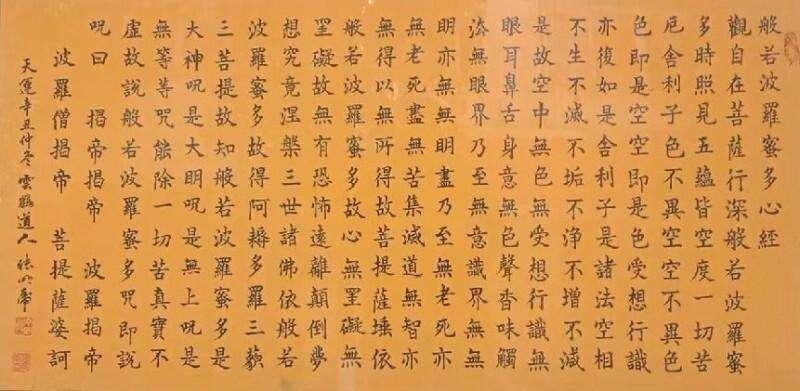 般若波羅蜜多心經
觀自在菩薩行深般若波羅蜜
多時照見五蘊皆空度一切苦
厄舍利子色不異空空不異色
色即是空空即是色受想行識
亦復如是舍利子是諸法空相
不生不滅不垢不淨不增不減
是故空中無色無受想行識無
眼耳鼻舌身意無色聲香味觸
法無眼界乃至無意識界無無
明亦無無明盡乃至無老死亦
無老死盡無苦集滅道無智亦
無得以無所得故菩提薩埵依
般若波羅蜜多故心無罣礙無
罣礙故無有恐怖遠離顛倒夢
想究竟涅槃三世諸佛依般若
波羅蜜多故得阿耨多羅三藐
三菩提故知般若波羅蜜多是
大神呪是大明呪是無上呪是
無等等呪能除一切苦真實不
虛故說般若波羅蜜多呪即說
呪曰 揭帝揭帝 波羅揭帝
波羅僧揭帝 菩提薩婆訶
天運辛丑仲冬 雲鶴道人